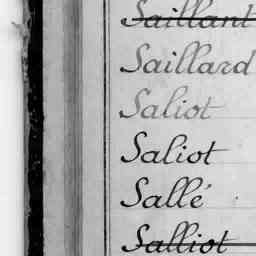 Saillant
Saillard
Saliot
Saliot
Sallé
Salliot